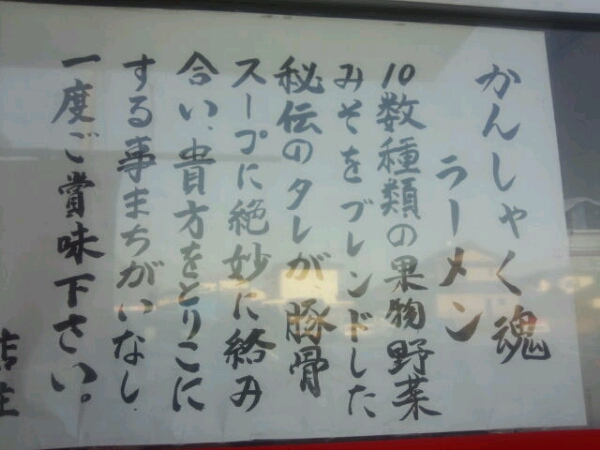 かんしゃく魂
ラーメン
10数種類の果物野菜
みそをブレンドした
秘伝のタレが、豚骨
スープに絶妙に絡み
合い、貴方をとりこに
する事まちがいなし
一度ご賞味下さい。
店主